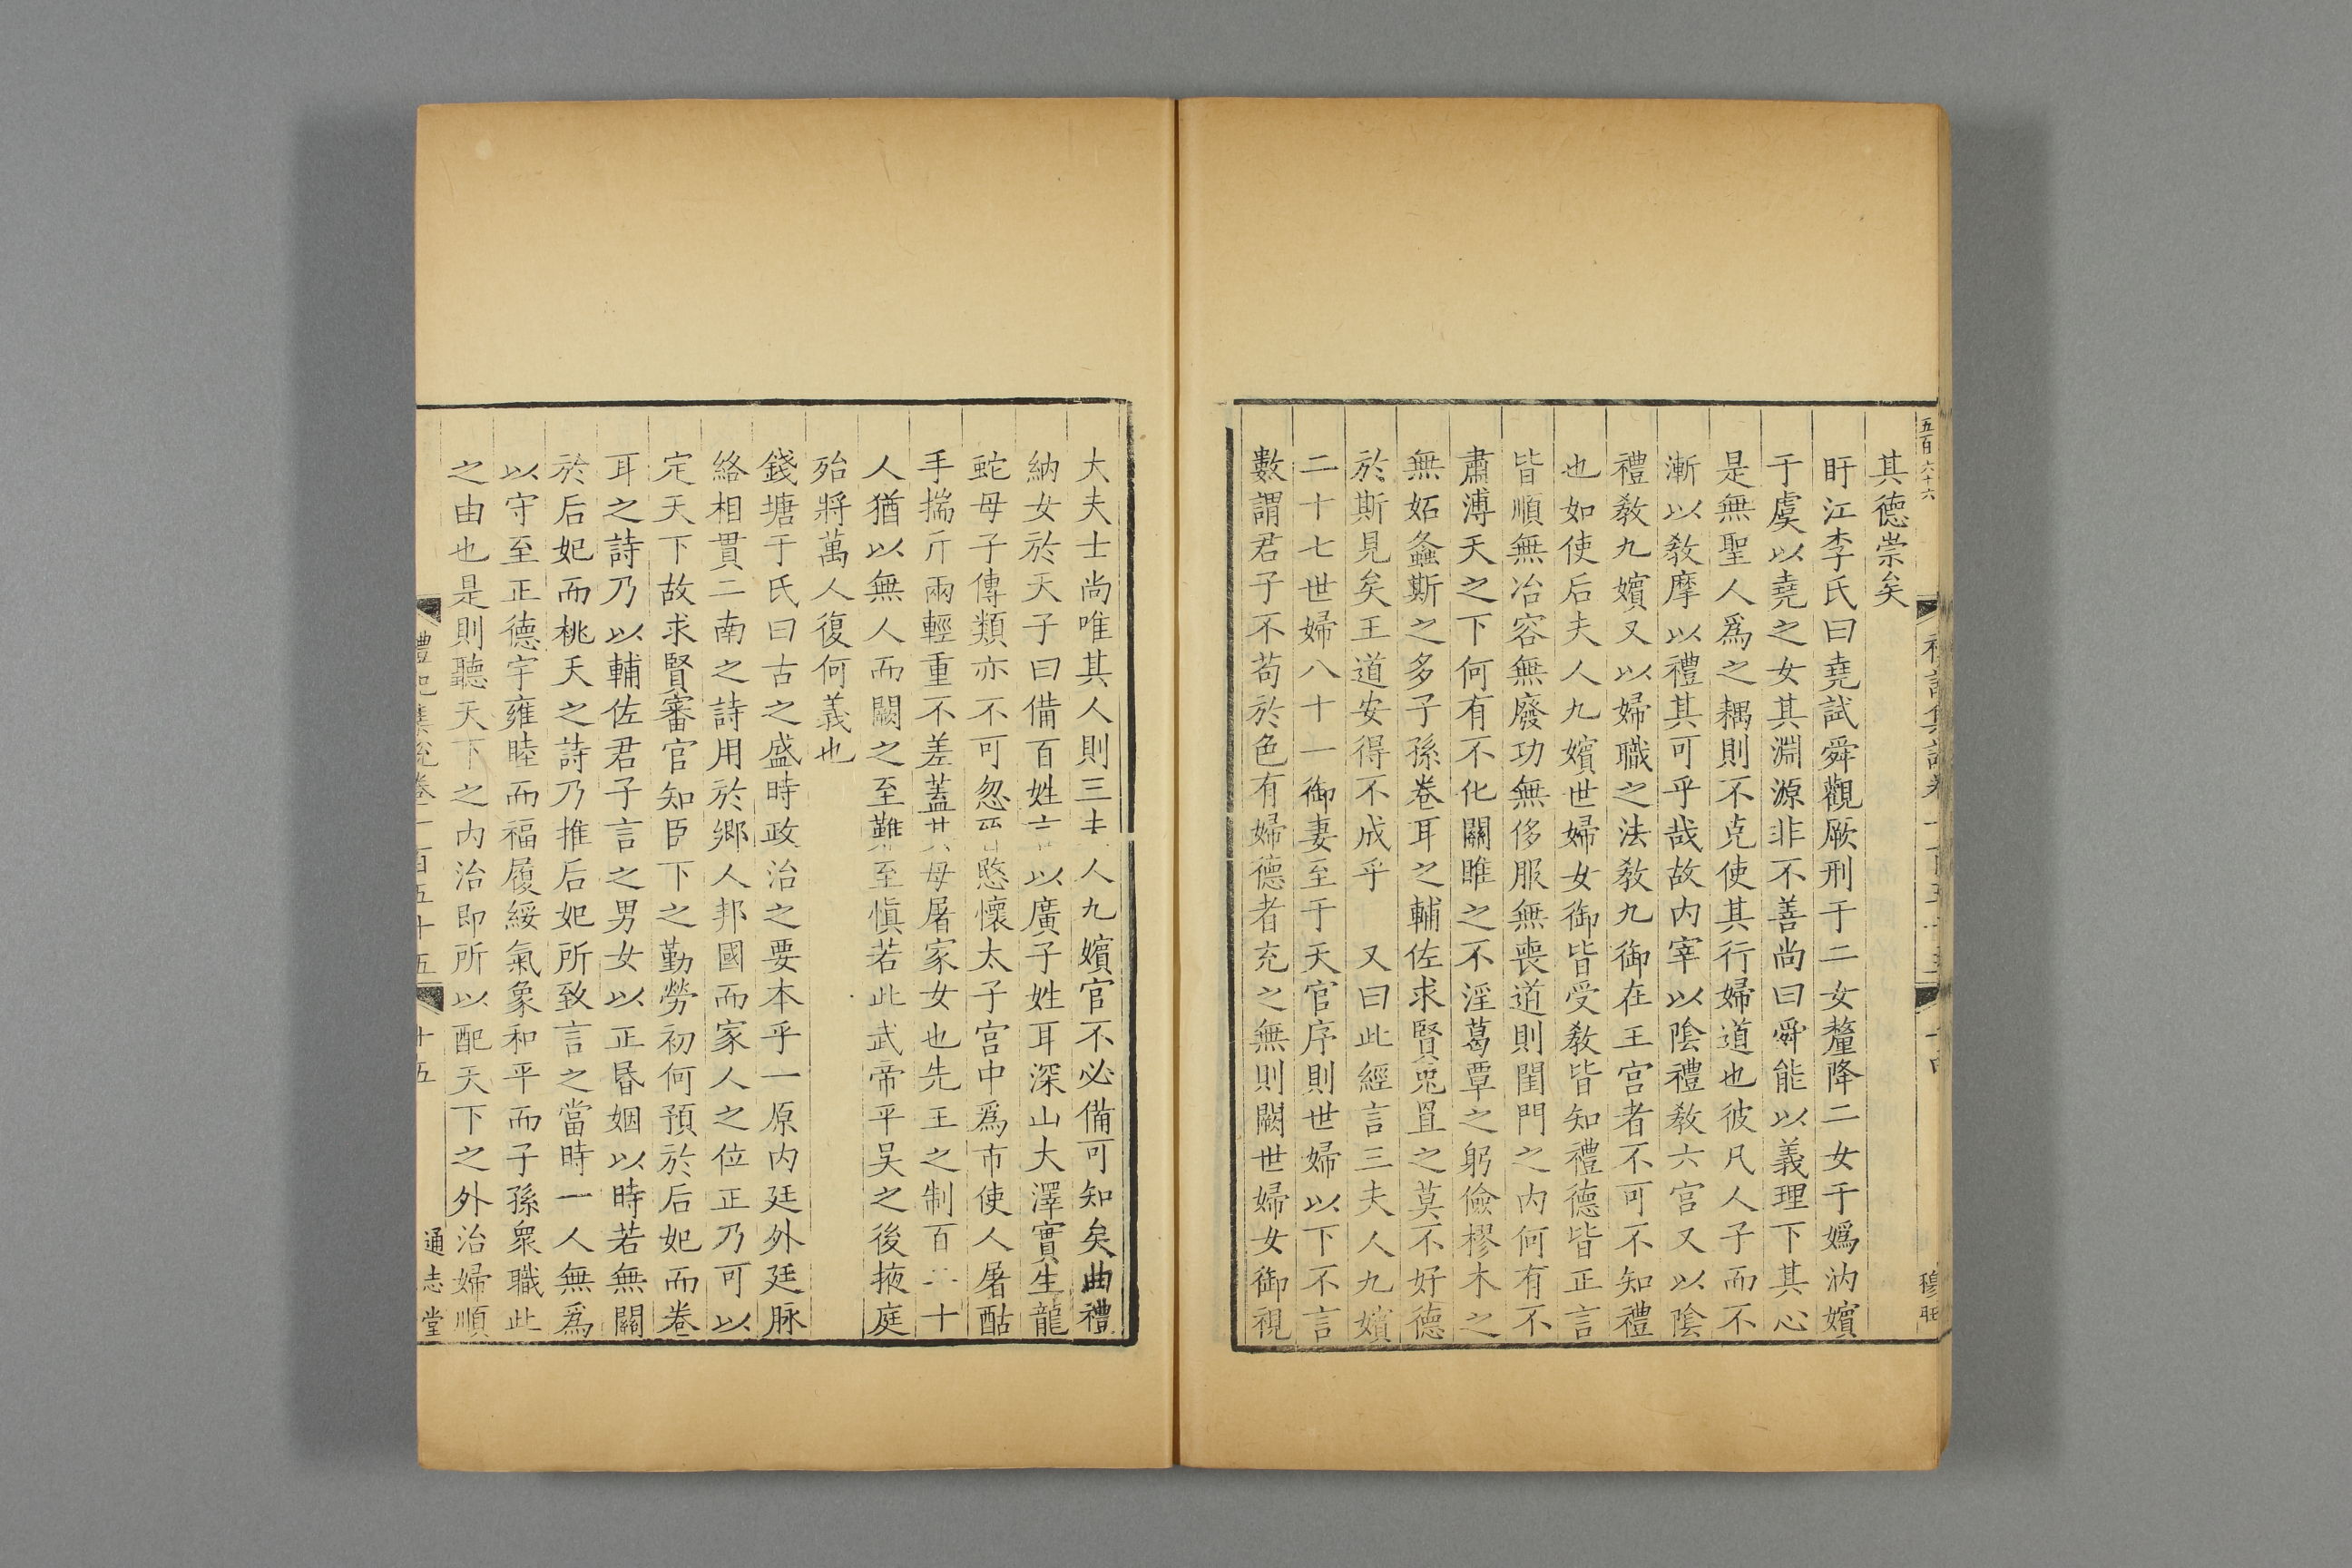 五百六十六
穆
其德崇矣
盱江李氏曰堯試舜觀厥刑于二女釐降二女于媯汭嬪
于虞以堯之女其淵源非不善尚曰舜能以義理下其心
是無聖人爲之耦則不克使其行婦道也彼凡人子而不
漸以敎摩以禮其可乎哉故內宰以陰禮敎六宮又以陰
禮敎九嬪又以婦職之法敎九御在王宮者不可不知禮
也如使后夫人九嬪世婦女御皆受敎皆知禮德皆正言
皆順無冶容無廢功無侈服無喪道則閨門之內何有不
肅溥天之下何有不化關雎之不淫葛覃之躬儉樛木之
無妬螽斯之多子孫卷耳之輔佐求賢兎罝之莫不好德
於斯見矣王道安得不成乎　又曰此經言三夫人九嬪
二十七世婦八十一御妻至于天官序則世婦以下不言
數謂君子不苟於色有婦德者充之無則闕世婦女御視
大夫士尚唯其人則三夫人九嬪官不必備可知矣曲禮
納女於天子曰備百姓言以廣子姓耳深山大澤實生龍
蛇母子傳類亦不可忽愍懷太子宮中爲市使人屠酤
手揣斤兩輕重不差蓋其母屠家女也先王之制百二十
人猶以無人而闕之至難至愼若此武帝平吳之後掖庭
殆將萬人復何義也
錢塘于氏曰古之盛時政治之要本乎一原內廷外廷脉
絡相貫二南之詩用於鄉人邦國而家人之位正乃可以
定天下故求賢審官知臣下之勤勞初何預於后妃而卷
耳之詩乃以輔佐君子言之男女以正昏姻以時若無關
於后妃而桃夭之詩乃推后妃所致言之當時一人無爲
以守至正德宇雍睦而福履綏氣象和平而子孫衆職此
之由也是則聽天下之內治即所以配天下之外治婦順
禮記集說卷一百五十五　十五　通志堂